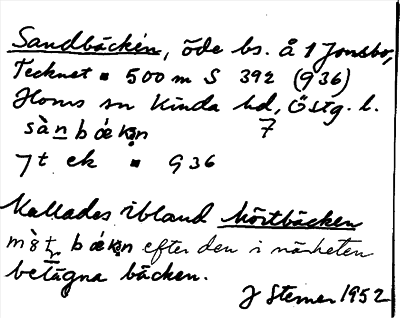 Sandbäcken, öde bs. å 1 Jonsbo,
Tecknet ▪ 500 m S 392 (936)
Horns sn Kinda hd, Östg. l.
sànbækən 7
7t ek ▪ 936
Kallades ibland
bækən efter den i närheten
belägna bäcken.
J Sterner 1952